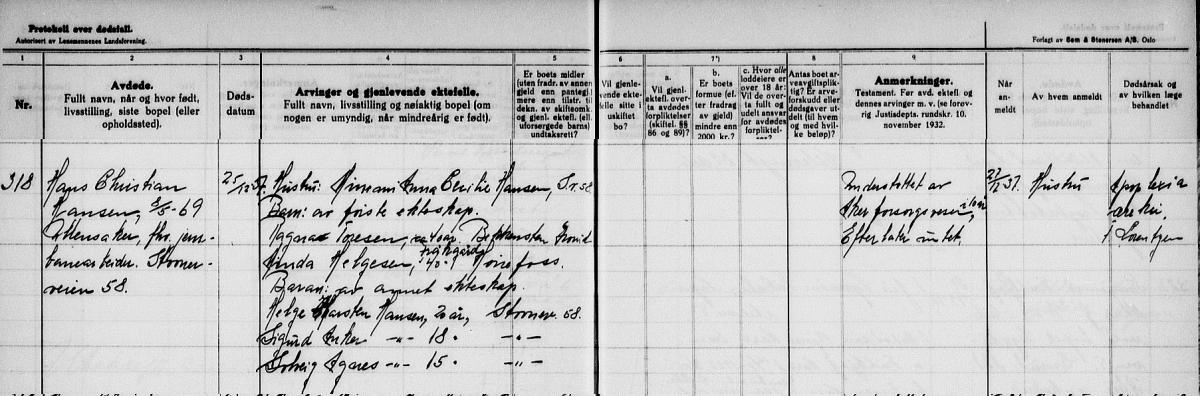 Protokoll over dødsfall.
Autorisert av Lensmennenes Landsforening.
Forlagt av Sem & Stenersen A/S. Oslo
1 2 3 4 5 6 7*) 8 9
Nr.
Avdøde.
Fullt navn, når og hvor født,
livsstilling, siste bopel (eller
opholdssted).
Døds-
datum
Arvinger og gjenlevende ektefelle.
Fullt navn, livsstilling og nøiaktig bopel (om
nogen er umyndig, når mindreårig er født).
Er boets midler
(uten fradr. av annen
gjeld enn pantegj.)
mere enn tilstr. til
dekn. av skifteomk.
og gjenl. ektefl. (ell.
uforsørgede barns)
undtaksrett?
Vil gjenle-
vende ekte-
felle sitte i
uskiftet
bo?
a.
Vil gjenl.
ektefl. over-
ta avdødes
forpliktel-
ser (skiftel.
§§ 86 og 89)?
b.
Er boets
formue (ef-
ter fradrag
av gjeld)
mindre enn
2000 kr.?
c. Hvor alle
loddeiere er
over 18 år:
Vil de overta
fullt og
udelt ansvar
for avdødes
forpliktel-
ser?
Antas boet ar-
veavgiftsplik-
tig? Er arve-
forskudd eller
dødsgaver ut-
delt (til hvem
og med hvil-
ke beløp)?
Anmerkninger.
Testament. Før avd. ektefl. og
dennes arvinger m. v. (se forøv-
rig Justisdepts. rundskr. 10.
november 1932.
Når
an-
meldt
Av hvem anmeldt
Dødsårsak og
av hvilken læge
behandlet
318 Hans Christian 25/12 37. Hustru: Anna Cecilie Hansen, St. 58 Understøttet av 27/12 37. Hustru Apoplexia
Hansen, 3/5-69 Barn: av første ekteskap. Aker forsorgsvesen,
Ullensaker, fhv. jern- Toresen, Lorentzen
banearbeider. Stovner- Helgesen, 40 Hønefoss. Efterlater intet.
veien 58. Barn: av annet ekteskap.
Helge Karsten Hansen, 20 år, Stovnerv. 58.
Sigurd Anker -"- 18 " -"-
Solveig Agnes -"- 15 " -"-